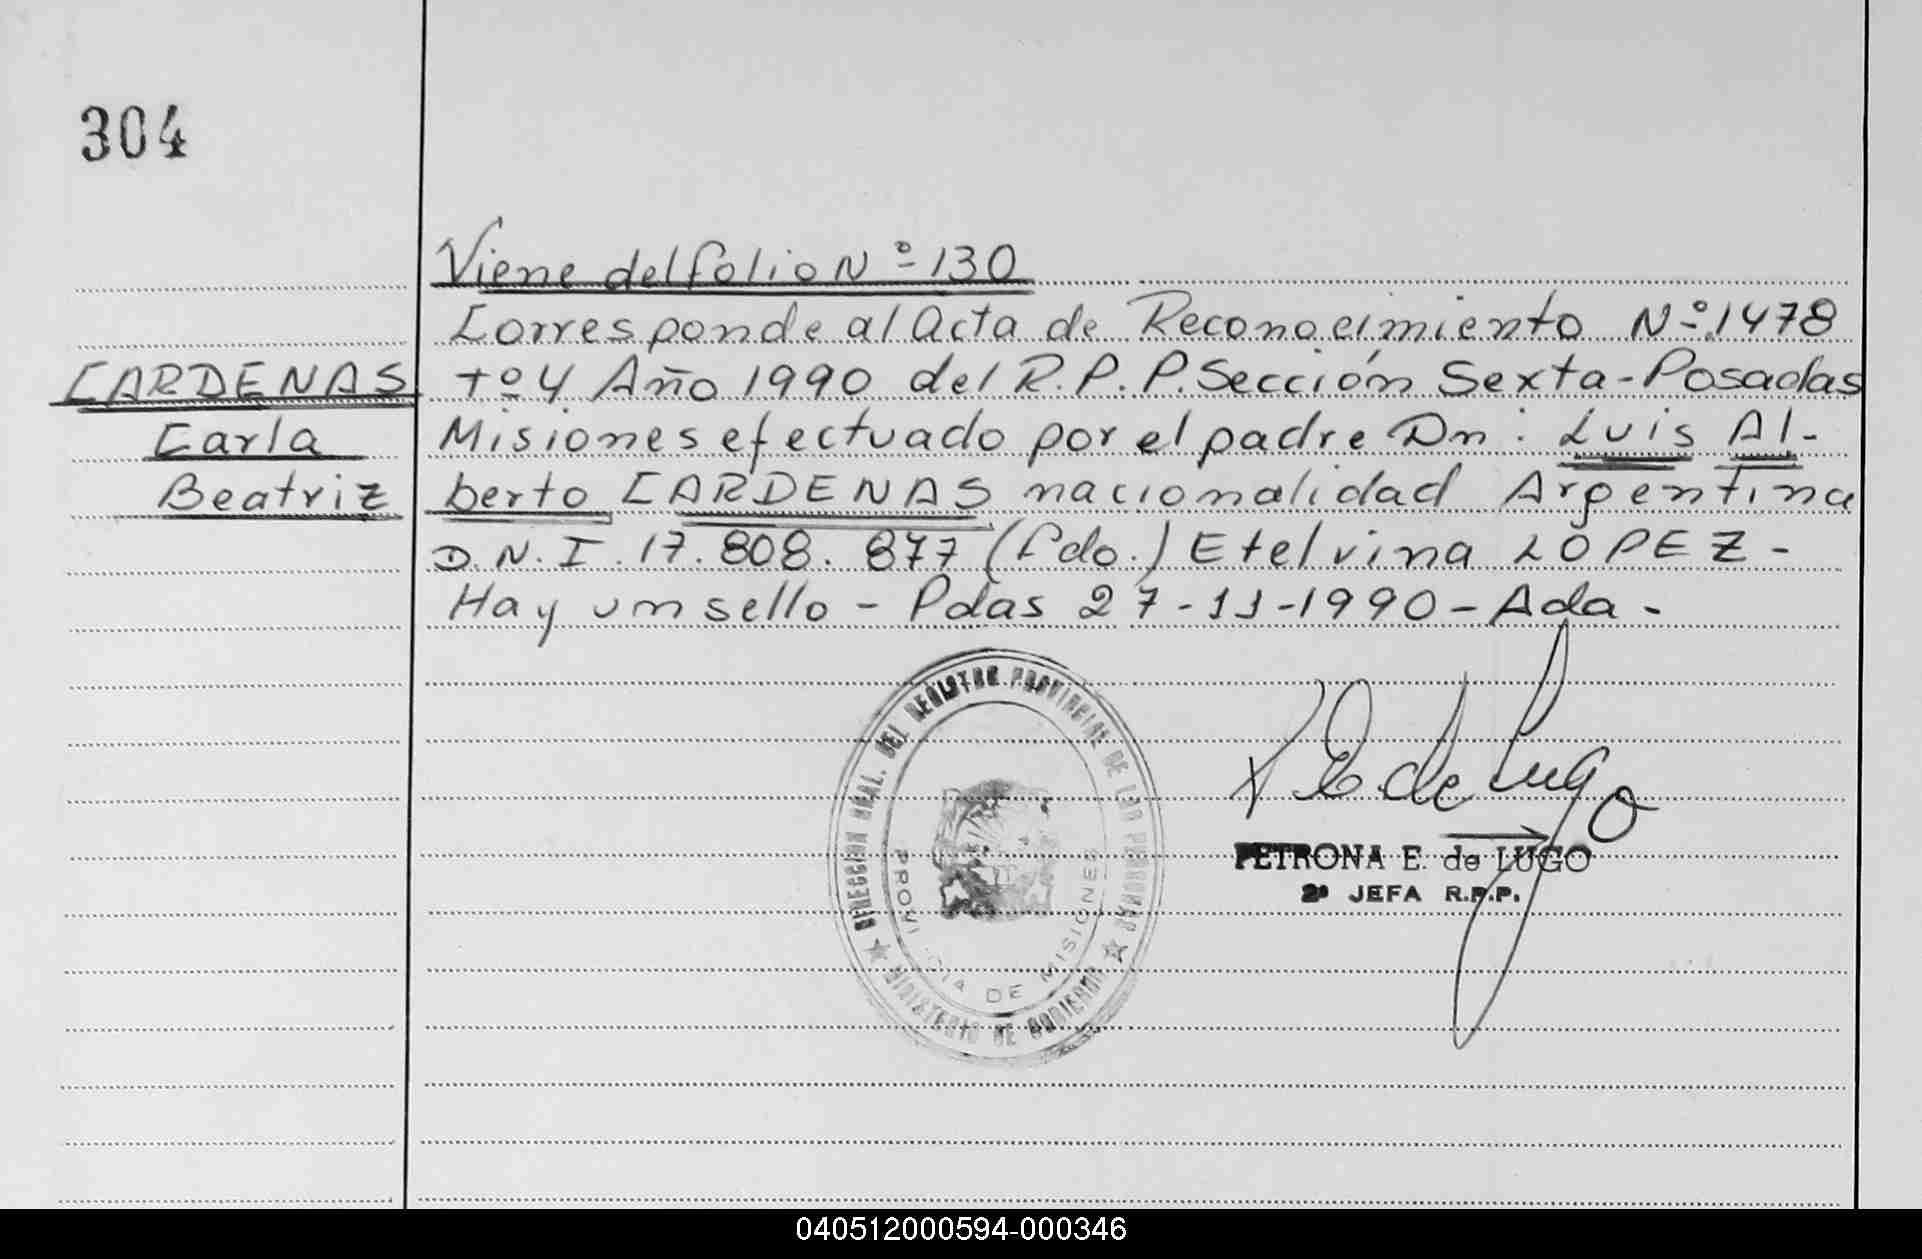 304
Viene del folio Nº 130
Corresponde al Acta de Reconocimiento Nº 1478
CARDENAS
Tº 4 Año 1990 del R.P.P. Sección Sexta - Posadas
Carla
Misiones efectuado por el padre Dn: Luis Al-
Beatriz
berto CARDENAS nacionalidad Argentina
D.N.I. 17.808.877 (Fdo.) Etelvina LOPEZ -
Hay un sello - Pdas 27-11-1990 - Ada -
DIRECCION GRAL. DEL REGISTRO PROVINCIAL DE LAS PERSONAS
PROVINCIA DE MISIONES
MINISTERIO DE GOBIERNO
P E de Lugo
PETRONA E. de LUGO
2ª JEFA R.P.P.
040512000594-000346